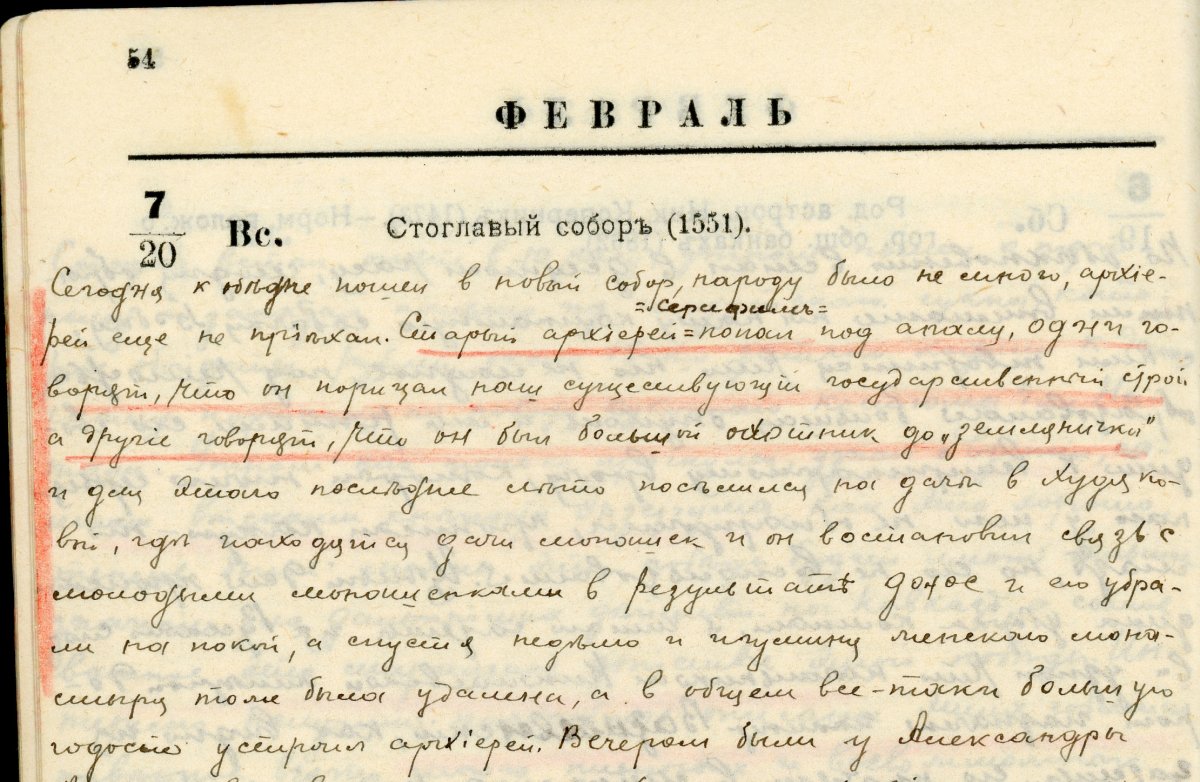 54
ФЕВРАЛЬ
7
20
Вс.
Стоглавый соборъ (1551).
Сегодня к обѣдне пошел в новый собор, народу было не много, архіе-
=Серафимъ=
рей еще не пріѣхал. Старый архіерей=попал под опалу, одни го-
ворят, что он порицал наш существующій государственный строй
а другіе говорят, что он был большой охотник до „землянички"
и для этого послѣдние лѣто поселился на даче в Худяко-
вый, гдѣ находятся дачи монашек и он востановил связь с
молодыми монашенками в результатѣ донос и его убра-
ли на покой, а спустя недѣлю и игумения женского мона-
стыря тоже была удалена, а в общем все-таки большую
гадость устроил архіерей. Вечером были у Александры